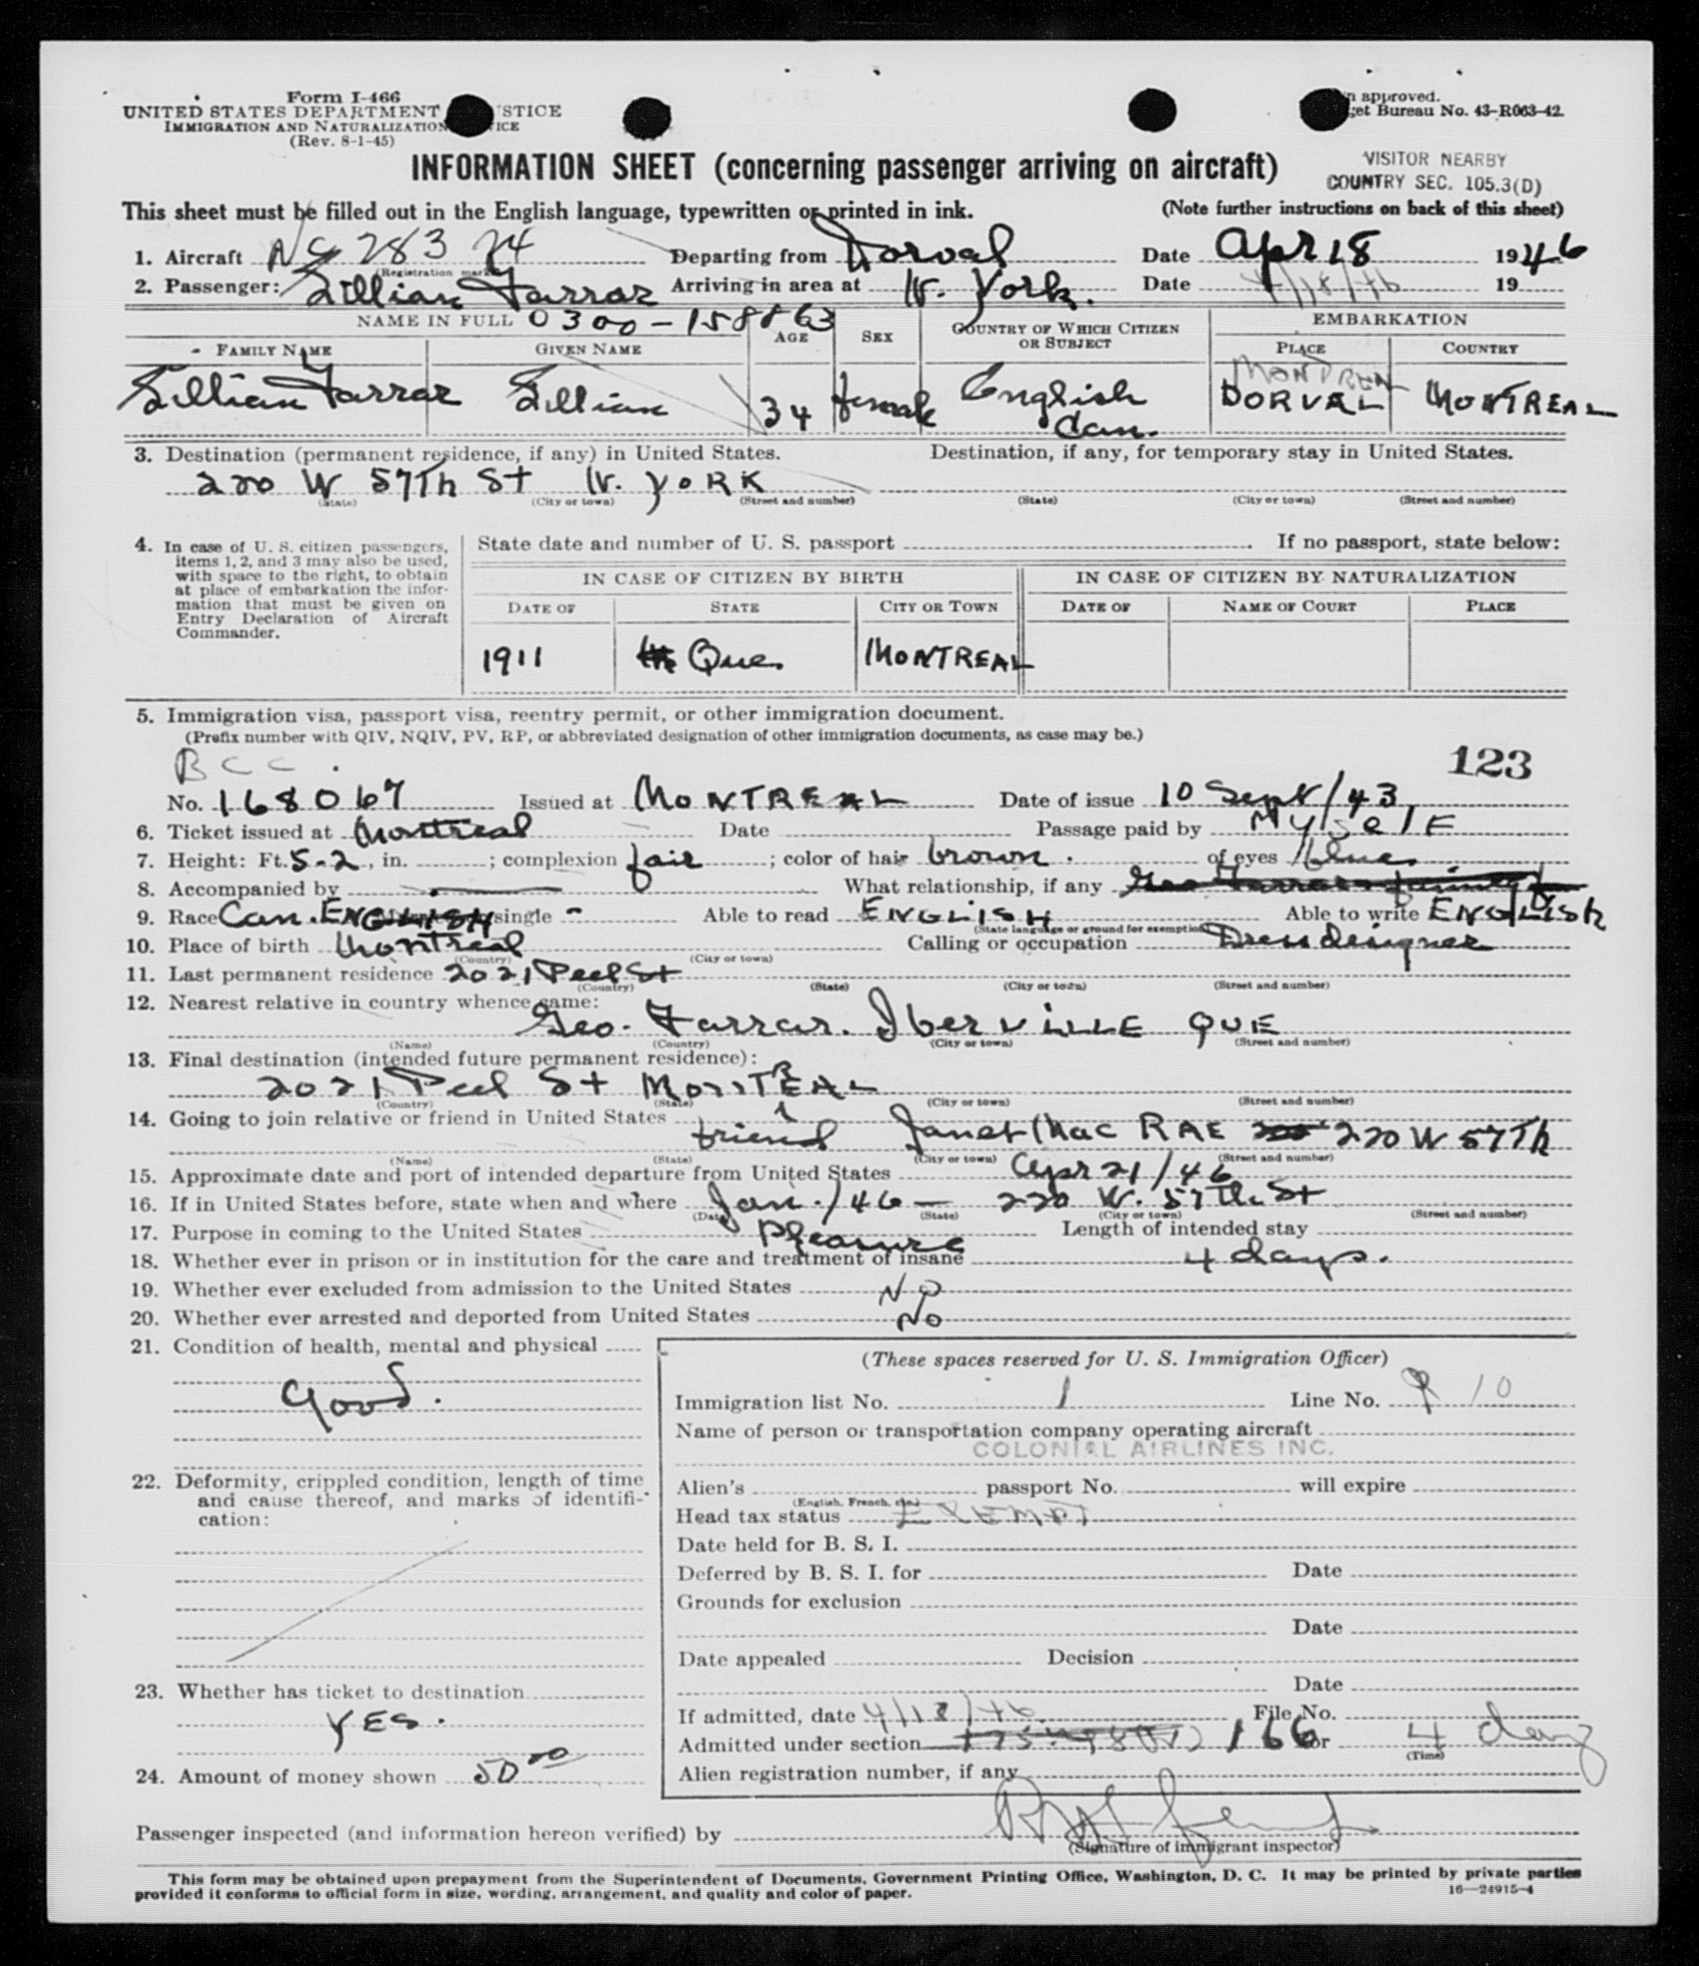 Form I-466
UNITED STATES DEPARTMENT STICE
IMMIGRATION AND NATURALIZATION ICE
(Rev. 8-1-45)
n approved.
get Bureau No. 43-R063-42.
INFORMATION SHEET (concerning passenger arriving on aircraft)
VISITOR NEARBY
COUNTRY SEC. 105.3(D)
This sheet must be filled out in the English language, typewritten or printed in ink.
(Note further instructions on back of this sheet)
1. Aircraft NC 28374 Departing from Dorval Date Apr 18 1946
(Registration mark)
2. Passenger: Lillian Farrar Arriving in area at N. York. Date 4/18/46 19
NAME IN FULL 0300-158863 AGE SEX COUNTRY OF WHICH CITIZEN OR SUBJECT EMBARKATION
FAMILY NAME GIVEN NAME PLACE COUNTRY
MONTREAL
Lillian Farrar Lillian 34 female English DORVAL MONTREAL
Can.
3. Destination (permanent residence, if any) in United States. Destination, if any, for temporary stay in United States.
220 W 57Th St N. YORK
(State) (City or town) (Street and number) (State) (City or town) (Street and number)
4. In case of U. S. citizen passengers, items 1, 2, and 3 may also be used, with space to the right, to obtain at place of embarkation the information that must be given on Entry Declaration of Aircraft Commander.
State date and number of U. S. passport If no passport, state below:
IN CASE OF CITIZEN BY BIRTH IN CASE OF CITIZEN BY NATURALIZATION
DATE OF STATE CITY OR TOWN DATE OF NAME OF COURT PLACE
1911 Que. MONTREAL
5. Immigration visa, passport visa, reentry permit, or other immigration document.
(Prefix number with QIV, NQIV, PV, RP, or abbreviated designation of other immigration documents, as case may be.)
BCC.
123
No. 168067 Issued at MONTREAL Date of issue 10 Sept/43
6. Ticket issued at Montreal Date Passage paid by MySelF
7. Height: Ft. 5-2, in. ; complexion fair ; color of hair brown. of eyes blue.
8. Accompanied by — What relationship, if any
9. Race Can. ENGLISH single - Able to read ENGLISH Able to write ENGLISh
(State language or ground for exemption)
10. Place of birth Montreal Calling or occupation Dress designer
(Country) (City or town)
11. Last permanent residence 2021 Peel St
(Country) (State) (City or town) (Street and number)
12. Nearest relative in country whence came:
Geo. Farrar. IberVILLE QUE
(Name) (Country) (City or town) (Street and number)
13. Final destination (intended future permanent residence):
2021 Peel St MONTREAL
(Country) (State) (City or town) (Street and number)
14. Going to join relative or friend in United States
friend Janet Mac RAE 220 W 57Th
(Name) (State) (City or town) (Street and number)
15. Approximate date and port of intended departure from United States Apr 21/46
16. If in United States before, state when and where Jan./46 — 220 W. 57Th. St
(Date) (State) (City or town) (Street and number)
17. Purpose in coming to the United States Pleasure Length of intended stay
18. Whether ever in prison or in institution for the care and treatment of insane 4 days.
19. Whether ever excluded from admission to the United States NO
20. Whether ever arrested and deported from United States No
21. Condition of health, mental and physical
Good.
22. Deformity, crippled condition, length of time and cause thereof, and marks of identification:
23. Whether has ticket to destination
YES.
24. Amount of money shown 50 00
(These spaces reserved for U. S. Immigration Officer)
Immigration list No. 1 Line No. 9 10
Name of person or transportation company operating aircraft
COLONIAL AIRLINES INC.
Alien's passport No. will expire
(English, French, etc.)
Head tax status EXEMPT
Date held for B. S. I.
Deferred by B. S. I. for Date
Grounds for exclusion
Date
Date appealed Decision
Date
If admitted, date 4/18/46 File No.
Admitted under section 166 for 4 days
(Time)
Alien registration number, if any
Passenger inspected (and information hereon verified) by
(Signature of immigrant inspector)
This form may be obtained upon prepayment from the Superintendent of Documents, Government Printing Office, Washington, D. C. It may be printed by private parties
provided it conforms to official form in size, wording, arrangement, and quality and color of paper.
16—24915-4